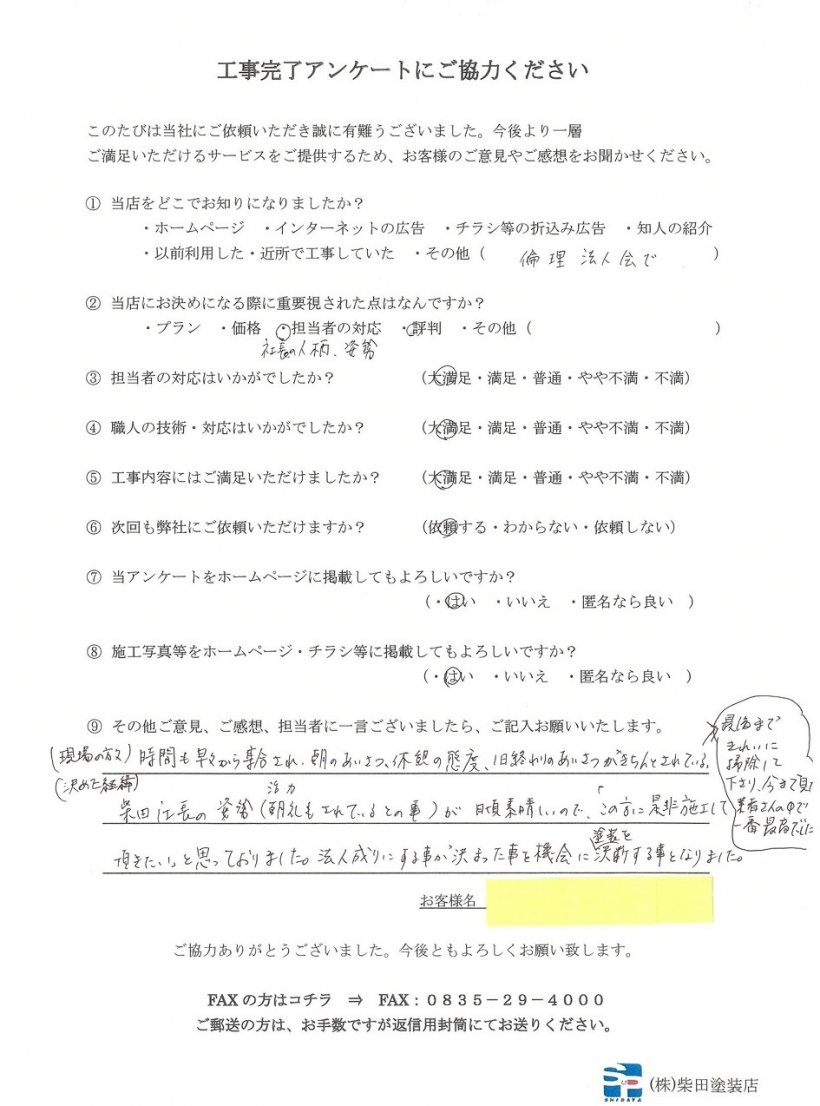 工事完了アンケートにご協力ください
このたびは当社にご依頼いただき誠に有難うございました。今後より一層
ご満足いただけるサービスをご提供するため、お客様のご意見やご感想をお聞かせください。
① 当店をどこでお知りになりましたか？
・ホームページ ・インターネットの広告 ・チラシ等の折込み広告 ・知人の紹介
・以前利用した・近所で工事していた ・その他（ 倫理法人会で ）
② 当店にお決めになる際に重要視された点はなんですか？
・プラン ・価格 ・担当者の対応 ・評判 ・その他（ ）
社長の人柄、姿勢
③ 担当者の対応はいかがでしたか？ （大満足・満足・普通・やや不満・不満）
④ 職人の技術・対応はいかがでしたか？ （大満足・満足・普通・やや不満・不満）
⑤ 工事内容にはご満足いただけましたか？ （大満足・満足・普通・やや不満・不満）
⑥ 次回も弊社にご依頼いただけますか？ （依頼する・わからない・依頼しない）
⑦ 当アンケートをホームページに掲載してもよろしいですか？
（・はい ・いいえ ・匿名なら良い ）
⑧ 施工写真等をホームページ・チラシ等に掲載してもよろしいですか？
（・はい ・いいえ ・匿名なら良い ）
⑨ その他ご意見、ご感想、担当者に一言ございましたら、ご記入お願いいたします。
（現場の方々）時間も早くから集合され、朝のあいさつ、休憩の態度、1日終わりのあいさつがきちんとされている。
（決めた経緯）
活力
柴田社長の姿勢（朝礼もされているとの事）が日頃素晴しいので、「この方に是非施工して
頂きたい」と思っておりました。法人成りにする事が決まった事を機会に塗装を決断する事となりました。
最後まで
きれいに
掃除して
下さり、今まで頂
業者さんの中で
一番最高でした
お客様名
ご協力ありがとうございました。今後ともよろしくお願い致します。
FAXの方はコチラ ⇒ FAX：０８３５－２９－４０００
ご郵送の方は、お手数ですが返信用封筒にてお送りください。
SP SHIBATA (株)柴田塗装店